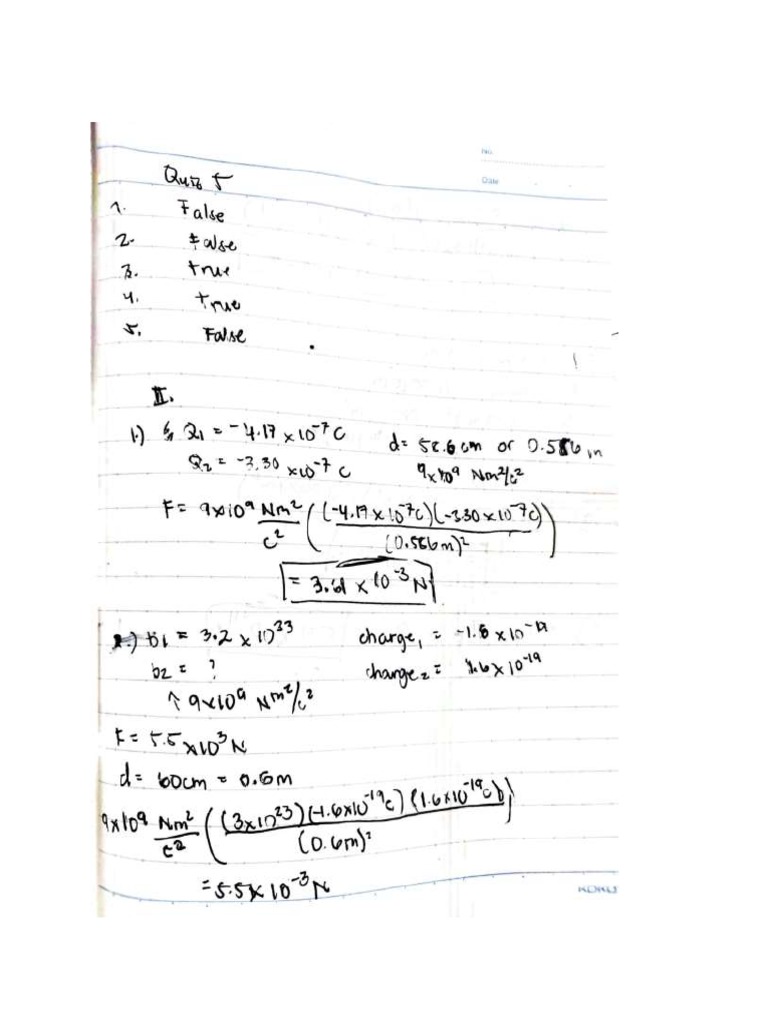 No.
Date
Quiz 5
1. False
2. False
3. true
4. true
5. False
II.
1.) Q₁ = -4.17 x 10⁻⁷ C d = 58.6 cm or 0.586 m
Q₂ = -3.30 x 10⁻⁷ C 9x10⁹ Nm²/c²
F = 9x10⁹ Nm²/c² ((-4.17 x 10⁻⁷C)(-3.30 x 10⁻⁷C) / (0.586m)²)
= 3.61 x 10⁻³ N
2.) b₁ = 3.2 x 10²³ charge₁ = -1.6 x 10⁻¹⁹
b₂ = ? charge₂ = 1.6 x 10⁻¹⁹
↑ 9x10⁹ Nm²/c²
F = 5.5 x 10³ N
d = 60cm = 0.6m
9x10⁹ Nm²/c² ((3x10²³)(-1.6x10⁻¹⁹c)(1.6x10⁻¹⁹c) b / (0.6m)²)
= 5.5 x 10⁻³ N